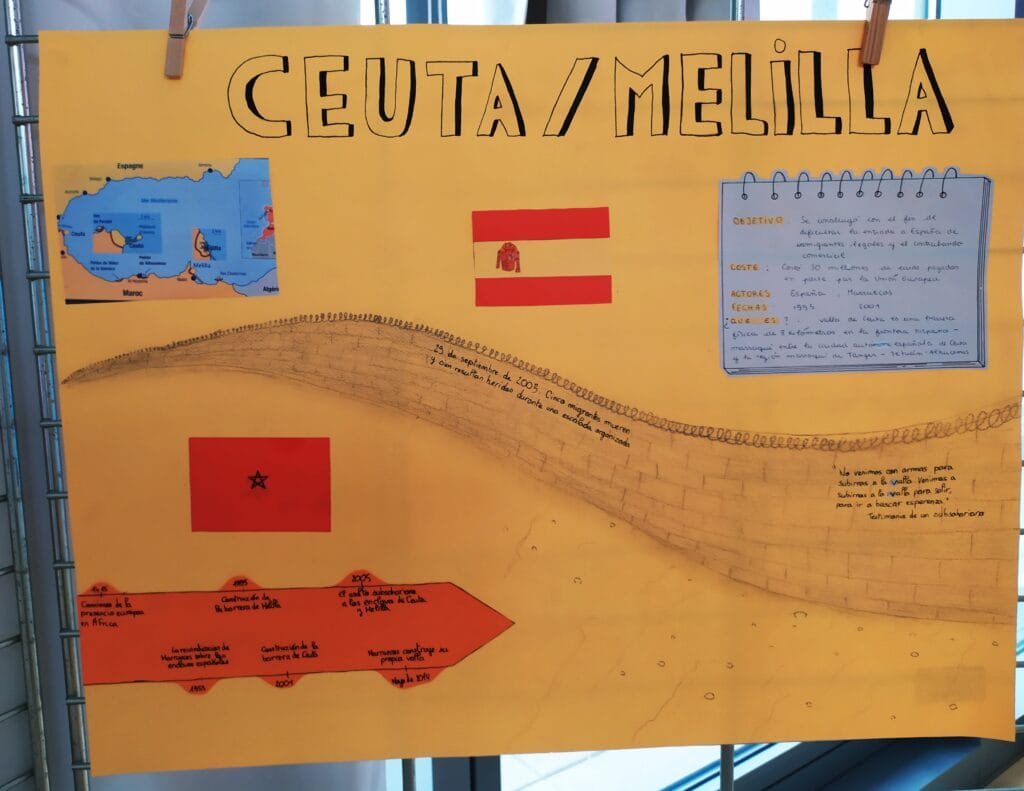 CEUTA/MELILLA
Espagne
Mer Méditerranée
Ceuta
Ceuta
Melilla
Melilla
Maroc
Algérie
OBJETIVO : Se construyó con el fin de
dificultar la entrada a España de
inmigrantes ilegales y el contrabando
comercial
COSTE : Casi 30 millones de euros pagados
en parte por la Unión Europea
ACTORES España, Marruecos
FECHAS 1995 2001
¿QUE ES? : valla de Ceuta es una barrera
física de 8 kilómetros en la frontera hispano-
marroquí entre la ciudad autónoma española de Ceuta
y la región marroquí de Tánger - Tetuán - Alhucemas
29 de septiembre de 2005: Cinco migrantes mueren
y cien resultan heridos durante una escalada organizada
"No venimos con armas para
subirnos a la valla. Venimos a
subirnos a la valla para salir,
para ir a buscar esperenza"
Testimonio de un subsahariano
1415
Comienzo de la
presencia europea
en África
1995
Construcción de
la barrera de Melilla
2005
El asalto subsahariano
a los enclaves de Ceuta
y Melilla
La reivindicación de
Marruecos sobre los
enclaves españoles
Construcción de la
barrera de Ceuta
2001
Marruecos construye su
propia valla
Mayo de 2014